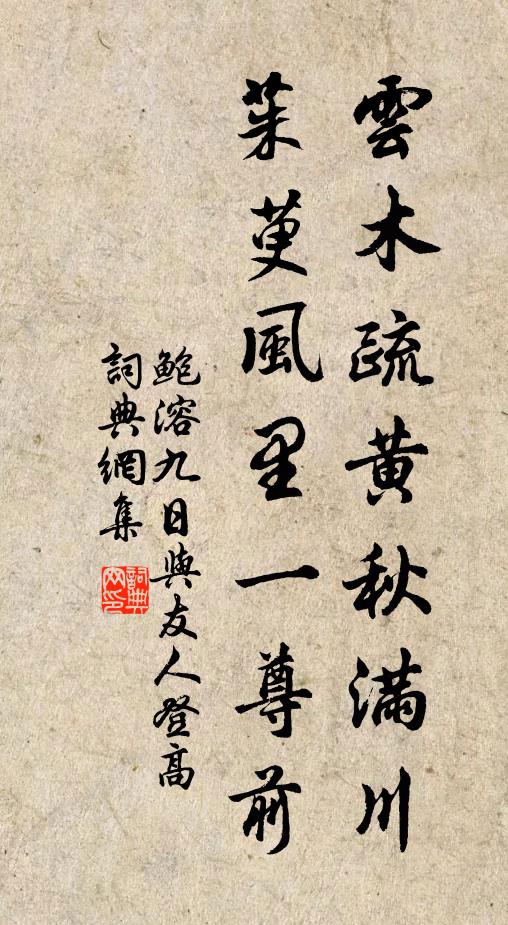 雲木疏黄秋滿川
茱萸風里一尊前
鮑溶九日與友人登高
詞典網集
詞典網印